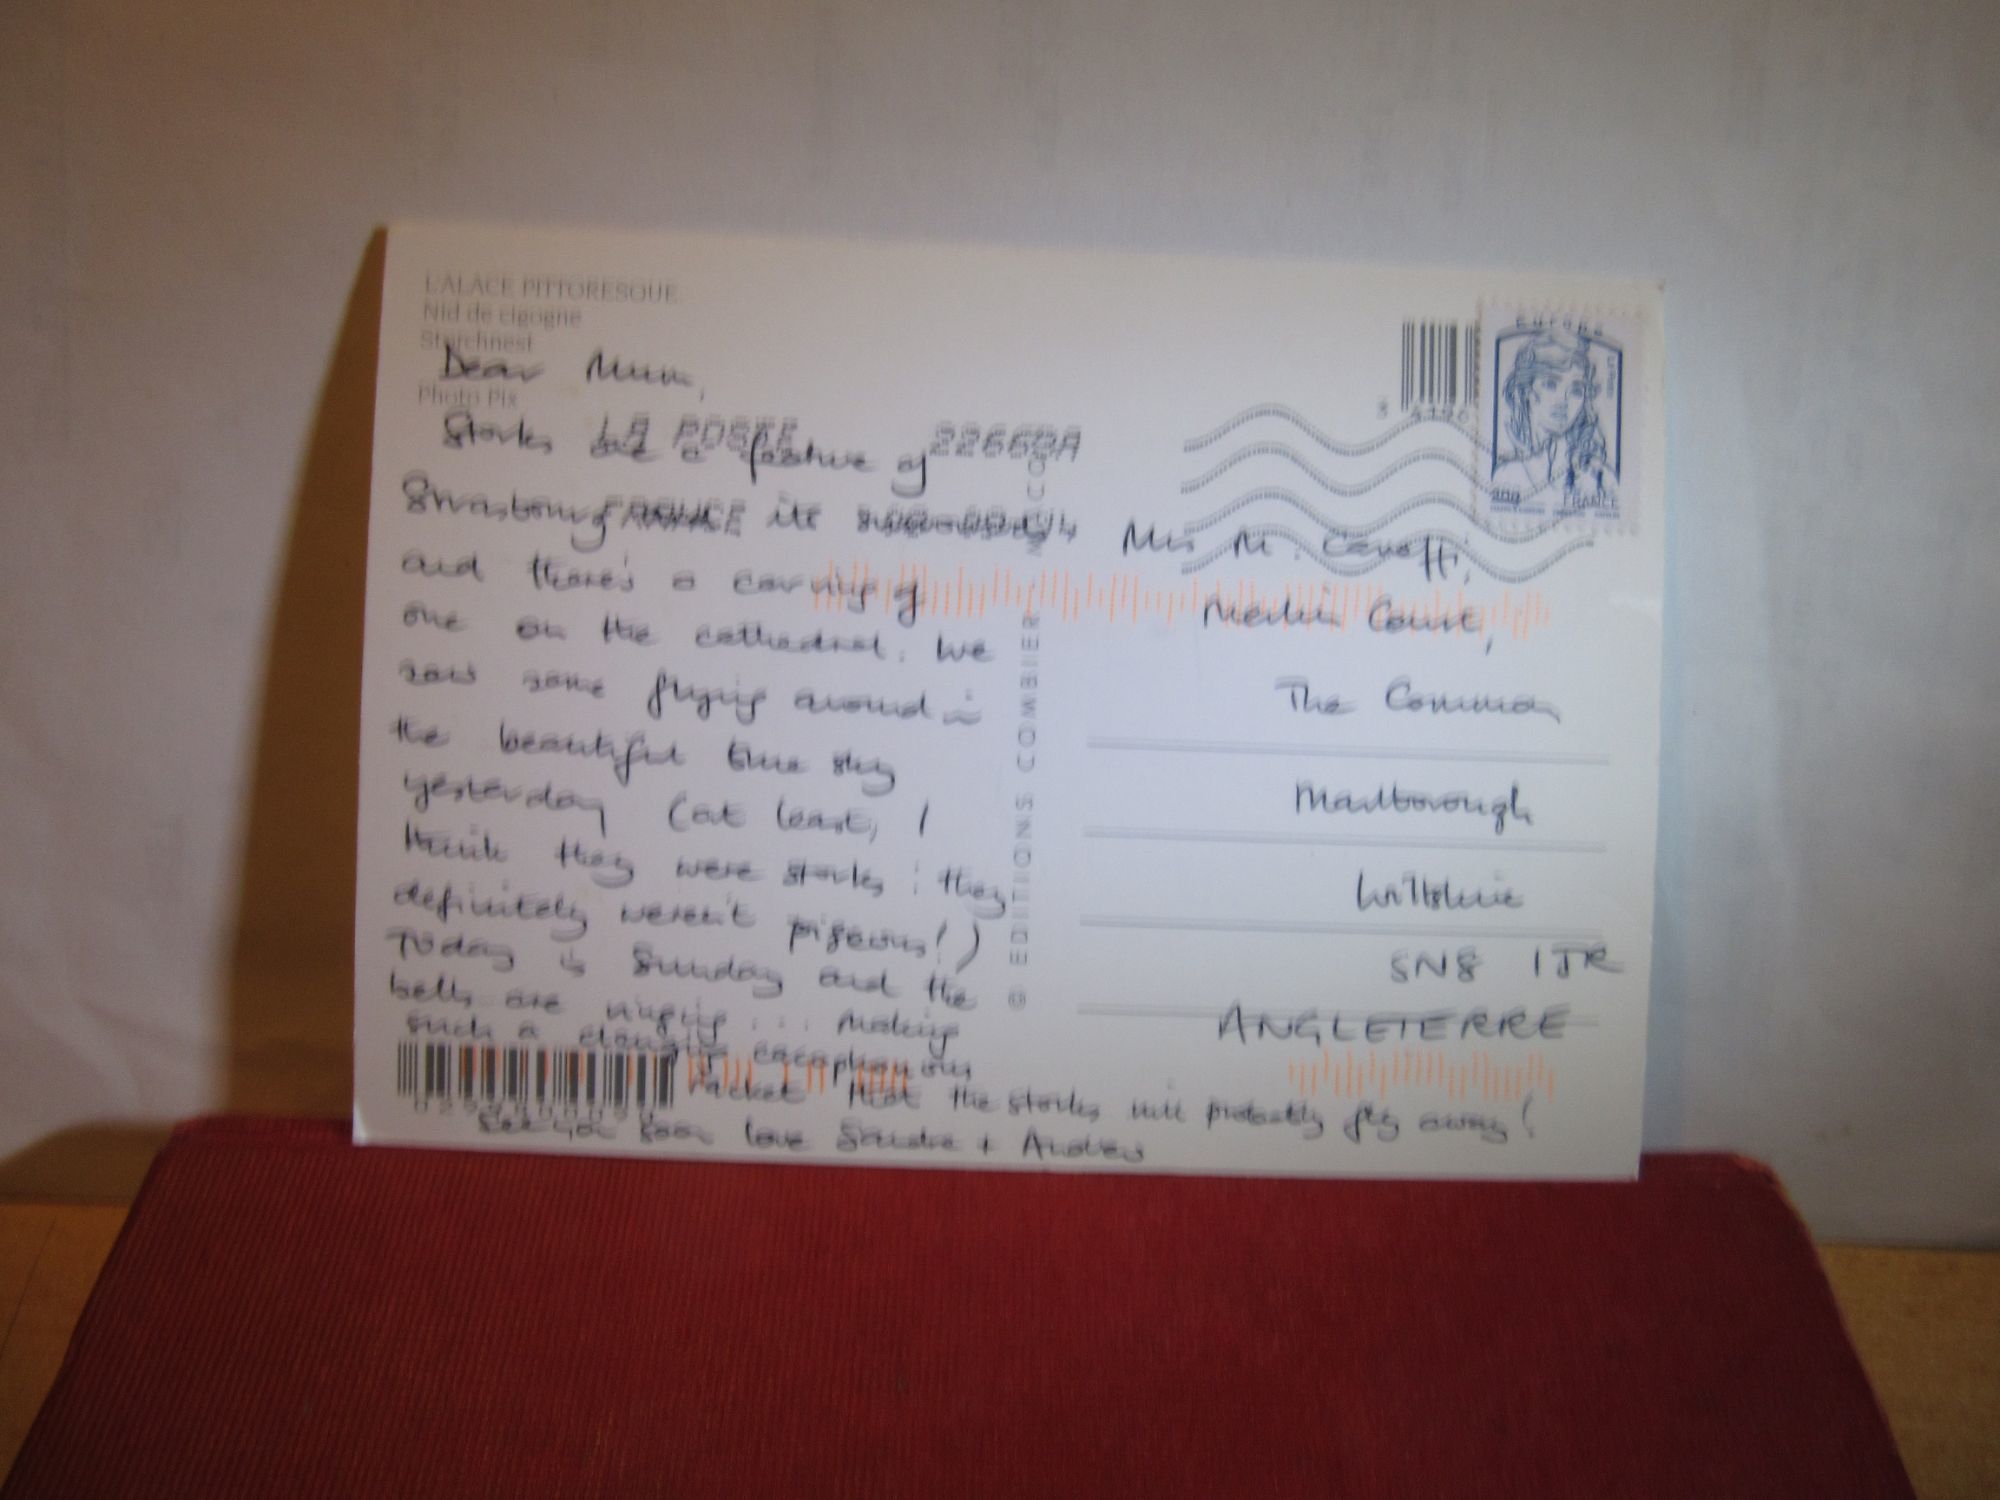 L'ALACE PITTORESQUE
Nid de cigogne
Storchnest
Photo Pix
Dear Mum,
Storks are a feature of
Strasbourg its surrounds,
and there's a carving of
one on the cathedral. We
saw some flying around in
the beautiful blue sky
yesterday (at least, I
think they were storks : they
definitely weren't pigeons!)
Today is Sunday and the
bells are ringing ... making
such a clanging cacophonous
racket that the storks will probably fly away!
See you soon love Sandra + Andrew
LA POSTE 22668A
FRANCE
© EDITIONS COMBIER
Europa
FRANCE
Mrs M.
Merlin Court,
The Common
Marlborough
Wiltshire
SN8 1JR
ANGLETERRE